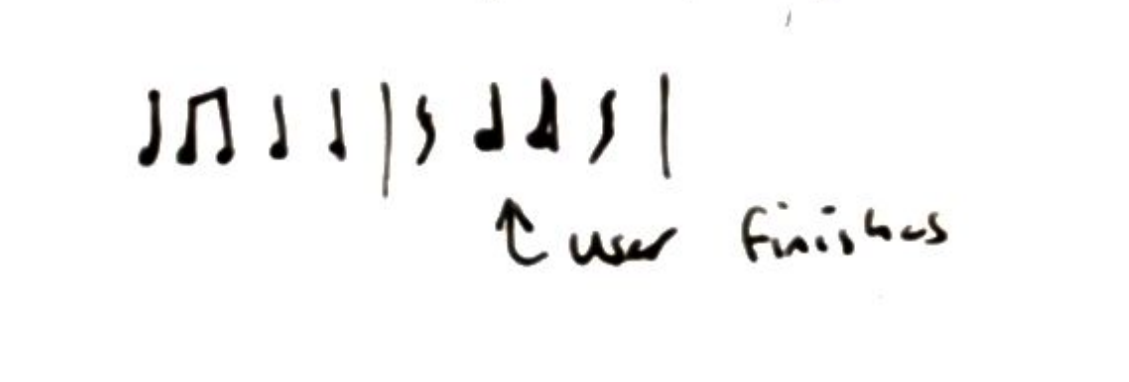 user finishes